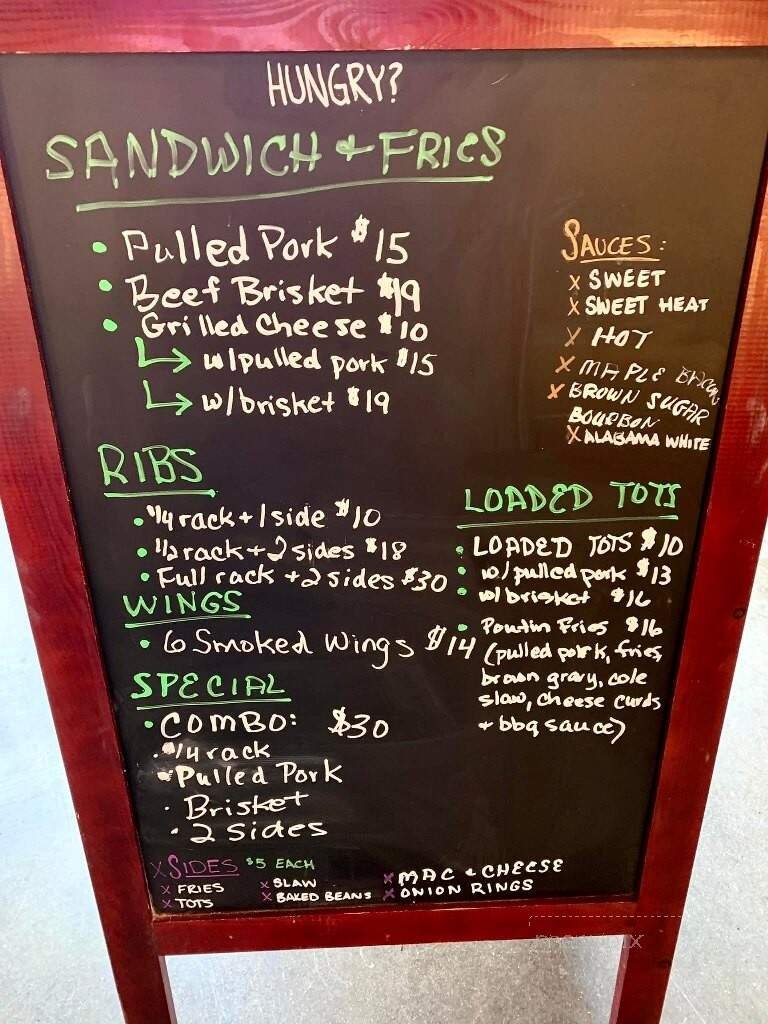 HUNGRY?
SANDWICH & FRIES
• Pulled Pork $15
• Beef Brisket $19
• Grilled Cheese $10
w/pulled pork $15
w/brisket $19
SAUCES:
x SWEET
x SWEET HEAT
x HOT
x MAPLE BACON
x BROWN SUGAR
BOURBON
x ALABAMA WHITE
RIBS
• 1/4 rack + 1 side $10
• 1/2 rack + 2 sides $18
• Full rack + 2 sides $30
WINGS
• 6 Smoked Wings $14
SPECIAL
• COMBO: $30
• 1/4 rack
• Pulled Pork
• Brisket
• 2 Sides
LOADED TOTS
• LOADED TOTS $10
• w/pulled pork $13
• w/brisket $16
• Poutin Fries $16
(pulled pork, fries,
brown gravy, cole
slaw, cheese curds
+ bbq sauce)
x SIDES $5 EACH
x FRIES
x TOTS
x SLAW
x BAKED BEANS
x MAC & CHEESE
x ONION RINGS